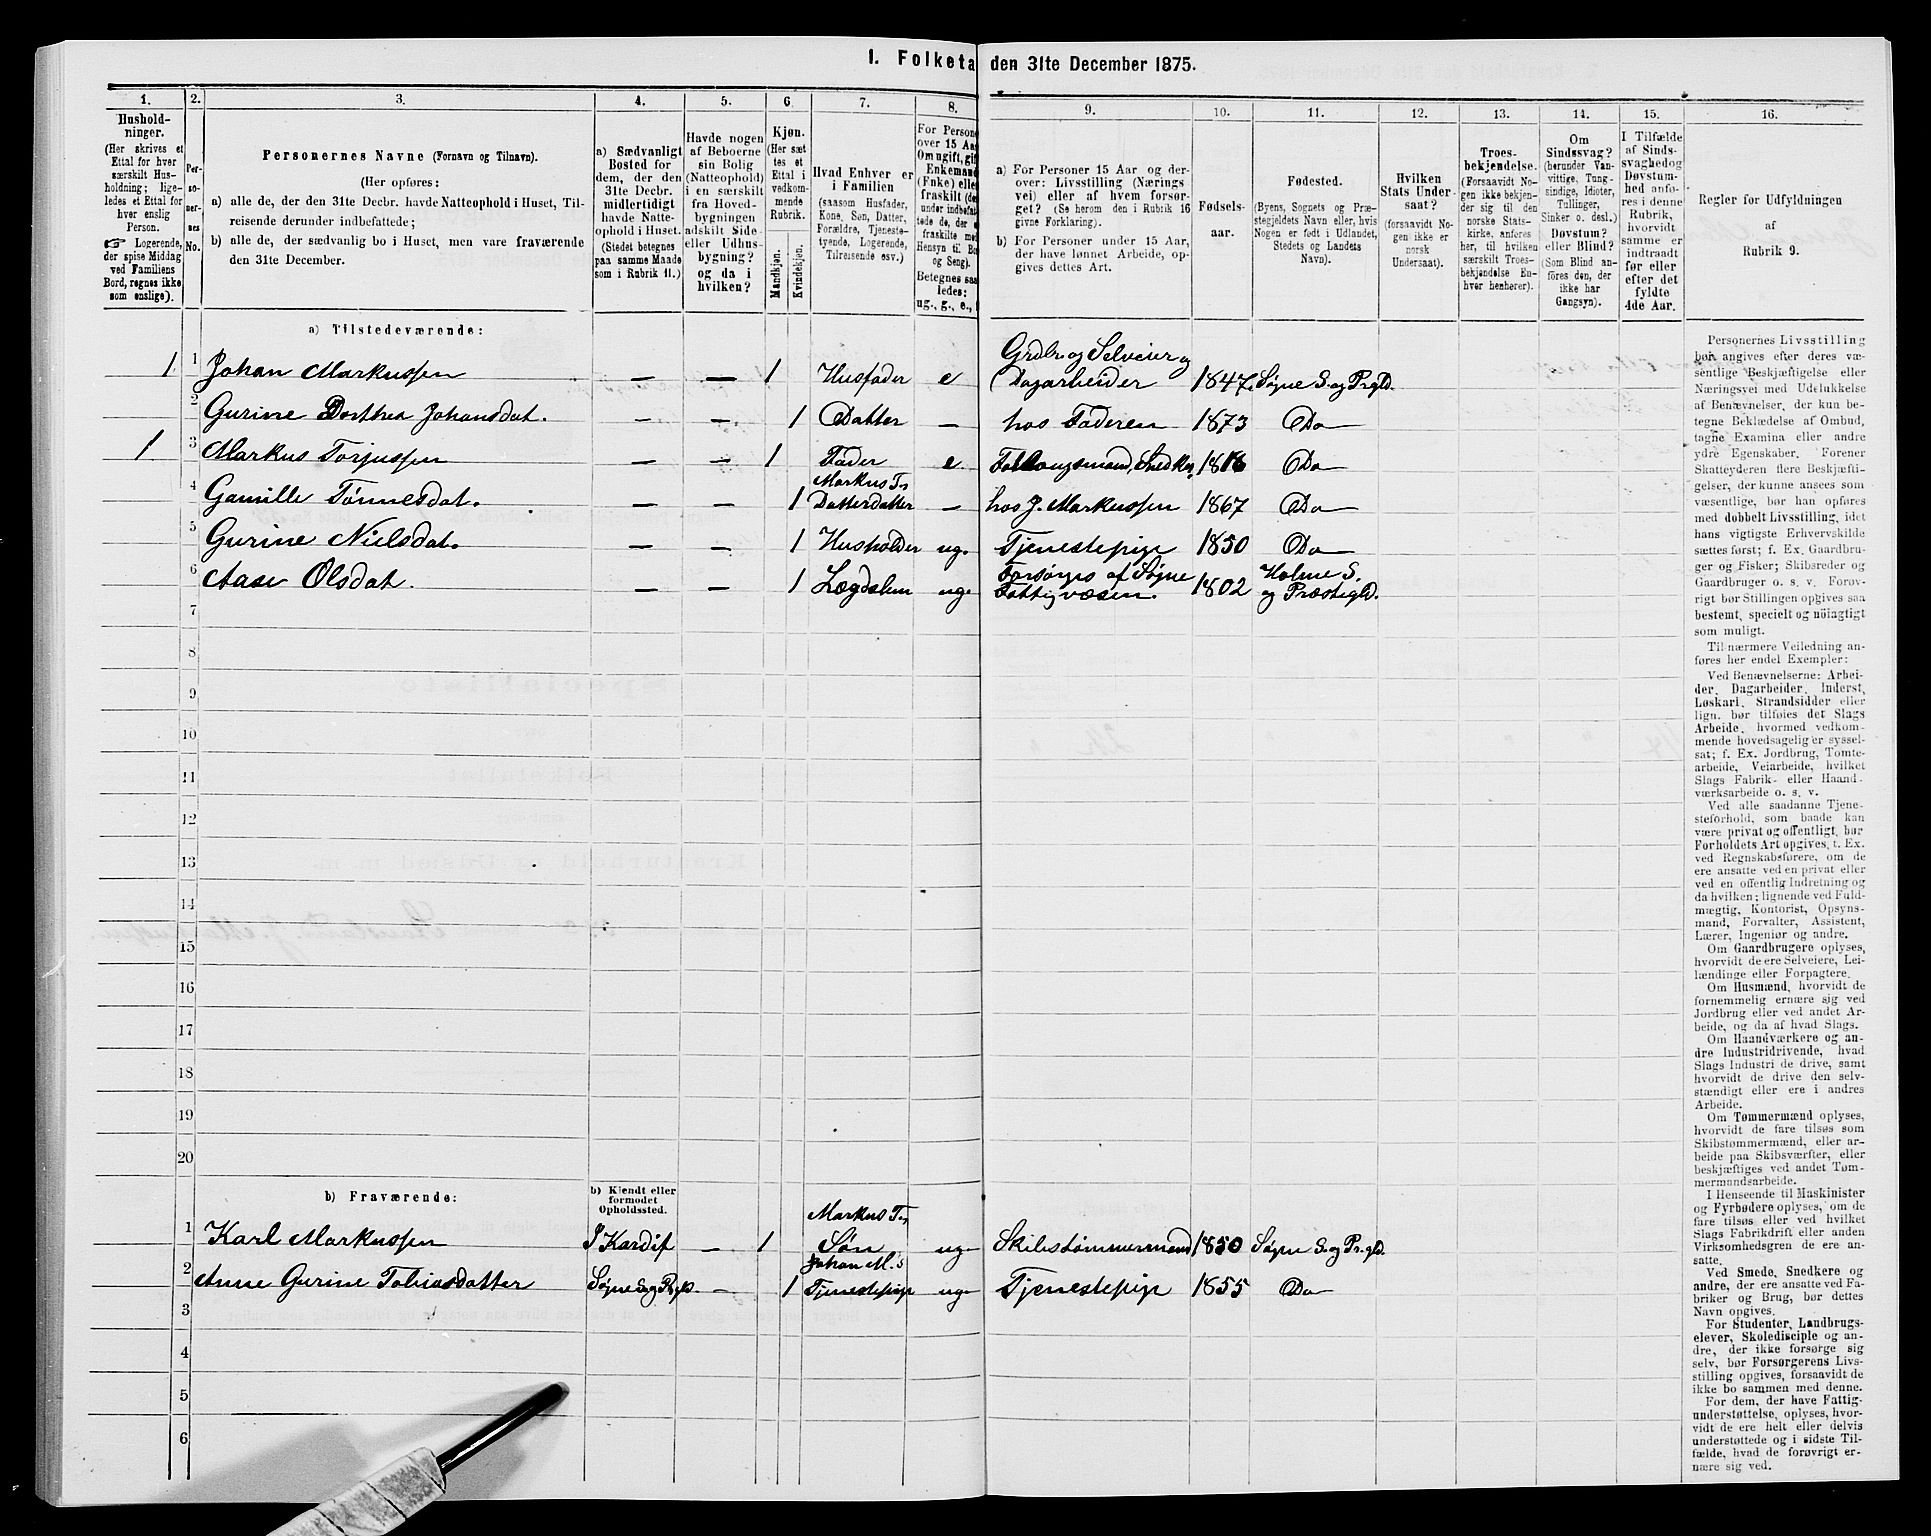 I. Folketa den 31te December 1875.
1.
Hushold-
ninger.
(Her skrives et
Ettal for hver
særskilt Hus-
holdning; lige-
ledes et Ettal for
hver enslig
Person.
☞ Logerende,
der spise Middag
ved Familiens
Bord, regnes ikke
som enslige).
2.
Per-
so-
ner-
nes
No.
3.
Personernes Navne (Fornavn og Tilnavn).
(Her opføres:
a) alle de, der den 31te Decbr. havde Natteophold i Huset, Til-
reisende derunder indbefattede;
b) alle de, der sædvanlig bo i Huset, men vare fraværende
den 31te December.
4.
a) Sædvanligt
Bosted for
dem, der den
31te Decbr.
midlertidigt
havde Natte-
ophold i Huset.
(Stedet betegnes
paa samme Maade
som i Rubrik 11.)
5.
Havde nogen
af Beboerne
sin Bolig
(Natteophold)
i en særskilt
fra Hoved-
bygningen
adskilt Side-
eller Udhus-
bygning?
og da i
hvilken?
6.
Kjøn.
(Her sæt
tes et
Ettal i
vedkom-
mende
Rubrik.
Mandkjøn.
Kvindekjøn.
7.
Hvad Enhver er
i Familien
(saasom Husfader,
Kone, Søn, Datter,
Forældre, Tjeneste-
tyende, Logerende,
Tilreisende osv.).
8.
For Person
over 15 Aar
Om ugift, gif
Enkemand
(Enke) elle
fraskilt (de
under indbefat
tede de, der e
fraskilte med
Hensyn til Bo
og Seng).
Betegnes saa
ledes:
ug., g., e.,
9.
a) For Personer 15 Aar og der-
over: Livsstilling (Nærings
vei) eller af hvem forsør-
get? (Se herom den i Rubrik 16
givne Forklaring).
b) For Personer under 15 Aar,
der have lønnet Arbeide, op-
gives dettes Art.
10.
Fødsels-
aar.
11.
Fødested.
(Byens, Sognets og Præ-
stegjeldets Navn eller, hvis
Nogen er født i Udlandet,
Stedets og Landets
Navn).
12.
Hvilken
Stats Under-
saat?
(forsaavidt No-
gen ikke er
norsk
Undersaat).
13.
Troes-
bekjendelse.
(Forsaavidt No-
gen ikke bekjen-
der sig til den
norske Stats-
kirke, anføres
her, til hvilken
særskilt Troes-
bekjendelse En-
hver henhører).
14.
Om
Sindssvag?
(herunder Van-
vittige, Tung-
sindige, Idioter,
Tullinger,
Sinker o. desl.)
Døvstum?
eller Blind?
(Som Blind an-
føres den, der
ikke har
Gangsyn).
15.
I Tilfælde
af Sinds-
svaghed og
Døvstum-
hed anfø-
res i denne
Rubrik,
hvorvidt
samme er
indtraadt
før eller
efter det
fyldte
4de Aar.
16.
Regler for Udfyldningen
af
Rubrik 9.
a) Tilstedeværende:
1 1 Johan Markussen — — 1 Husfader e Grdbr. og Selveier og Dagarbeider 1847. Søgne S. og Prgld.
2 Gurine Dorthea Johansdat. — — 1 Datter — hos Faderen 1873 Do
1 3 Markus Torjussen 1 Fader e 1816 Do
4 Gamille Tønnesdat. — — 1 Markus T.s Datterdatter — hos J. Markussen 1867 Do
5 Gurine Nielsdat. — — 1 Husholder ug. Tjenestepige 1850 Do
6 Aase Olsdat. — — 1 Lægdslem ug. Forsørges af Søgne Fattigvæsen. 1802 Holme S. og Præstegld.
7
8
9
10
11
12
13
14
15
16
17
18
19
20
b) Fraværende:
b) Kjendt eller
formodet
Opholdssted.
1 Karl Markussen I Kardif — 1 Markus T.s Søn ug. Skibstømmermand 1850 Søgne S. og Pr.gld.
2 Anne Gurine Tobiasdatter Søgne S. og Prgld. — 1 Johan M.s Tjenestepige ug. Tjenestepige 1855 Do
3
4
5
6
Personernes Livsstilling
bør angives efter deres væ-
sentlige Beskjæftigelse eller
Næringsvei med Udelukkelse
af Benævnelser, der kun be-
tegne Beklædelse af Ombud,
tagne Examina eller andre
ydre Egenskaber. Forener
Skatteyderen flere Beskjæfti-
gelser, der kunne ansees som
væsentlige, bør han opføres
med dobbelt Livsstilling, idet
hans vigtigste Erhvervskilde
sættes først; f. Ex. Gaardbru-
ger og Fisker; Skibsreder og
Gaardbruger o. s. v. Forøv-
rigt bør Stillingen opgives saa
bestemt, specielt og nöiagtigt
som muligt.
Til nærmere Veiledning an-
føres her endel Exempler:
Ved Benævnelserne: Arbei-
der, Dagarbeider, Inderst,
Løskarl, Strandsidder eller
lign. bør tilføies det Slags
Arbeide, hvormed vedkom-
mende hovedsagelig er syssel-
sat; f. Ex. Jordbrug, Tomte-
arbeide, Veiarbeide, hvilket
Slags Fabrik- eller Haand-
værksarbeide o. s. v.
Ved alle saadanne Tjene-
steforhold, som baade kan
være privat og offentligt, bør
Forholdets Art opgives, f. Ex.
ved Regnskabsførere, om de
ere ansatte ved en privat eller
ved en offentlig Indretning og
da hvilken; lignende ved Fuld-
mægtig, Kontorist, Opsyns-
mand, Forvalter, Assistent,
Lærer, Ingeniør og andre.
Om Gaardbrugere oplyses,
hvorvidt de ere Selveiere, Lei-
lændinge eller Forpagtere.
Om Husmænd, hvorvidt de
fornemmelig ernære sig ved
Jordbrug eller ved andet Ar-
beide, og da af hvad Slags.
Om Haandværkere og an-
dre Industridrivende, hvad
Slags Industri de drive, samt
hvorvidt de drive den selv-
stændigt eller ere i andres
Arbeide.
Om Tømmermænd oplyses,
hvorvidt de fare tilsøs som
Skibstømmermænd, eller ar-
beide paa Skibsværfter, eller
beskjæftiges ved andet Tøm-
mermandsarbeide.
I Henseende til Maskinister
og Fyrbødere oplyses, om de
fare tilsøs eller ved hvilket
Slags Fabrikdrift eller anden
Virksomhedsgren de ere an-
satte.
Ved Smede, Snedkere og
andre, der ere ansatte ved Fa-
briker og Brug, bør dettes
Navn opgives.
For Studenter, Landbrugs-
elever, Skoledisciple og an-
dre, der ikke forsørge sig
selv, bør Forsørgerens Livs-
stilling opgives, forsaavidt de
ikke bo sammen med denne.
For dem, der have Fattig-
understøttelse, oplyses, hvor-
vidt de ere helt eller delvis
understøttede og i sidste Til-
fælde, hvad de forøvrigt er-
nære sig ved.